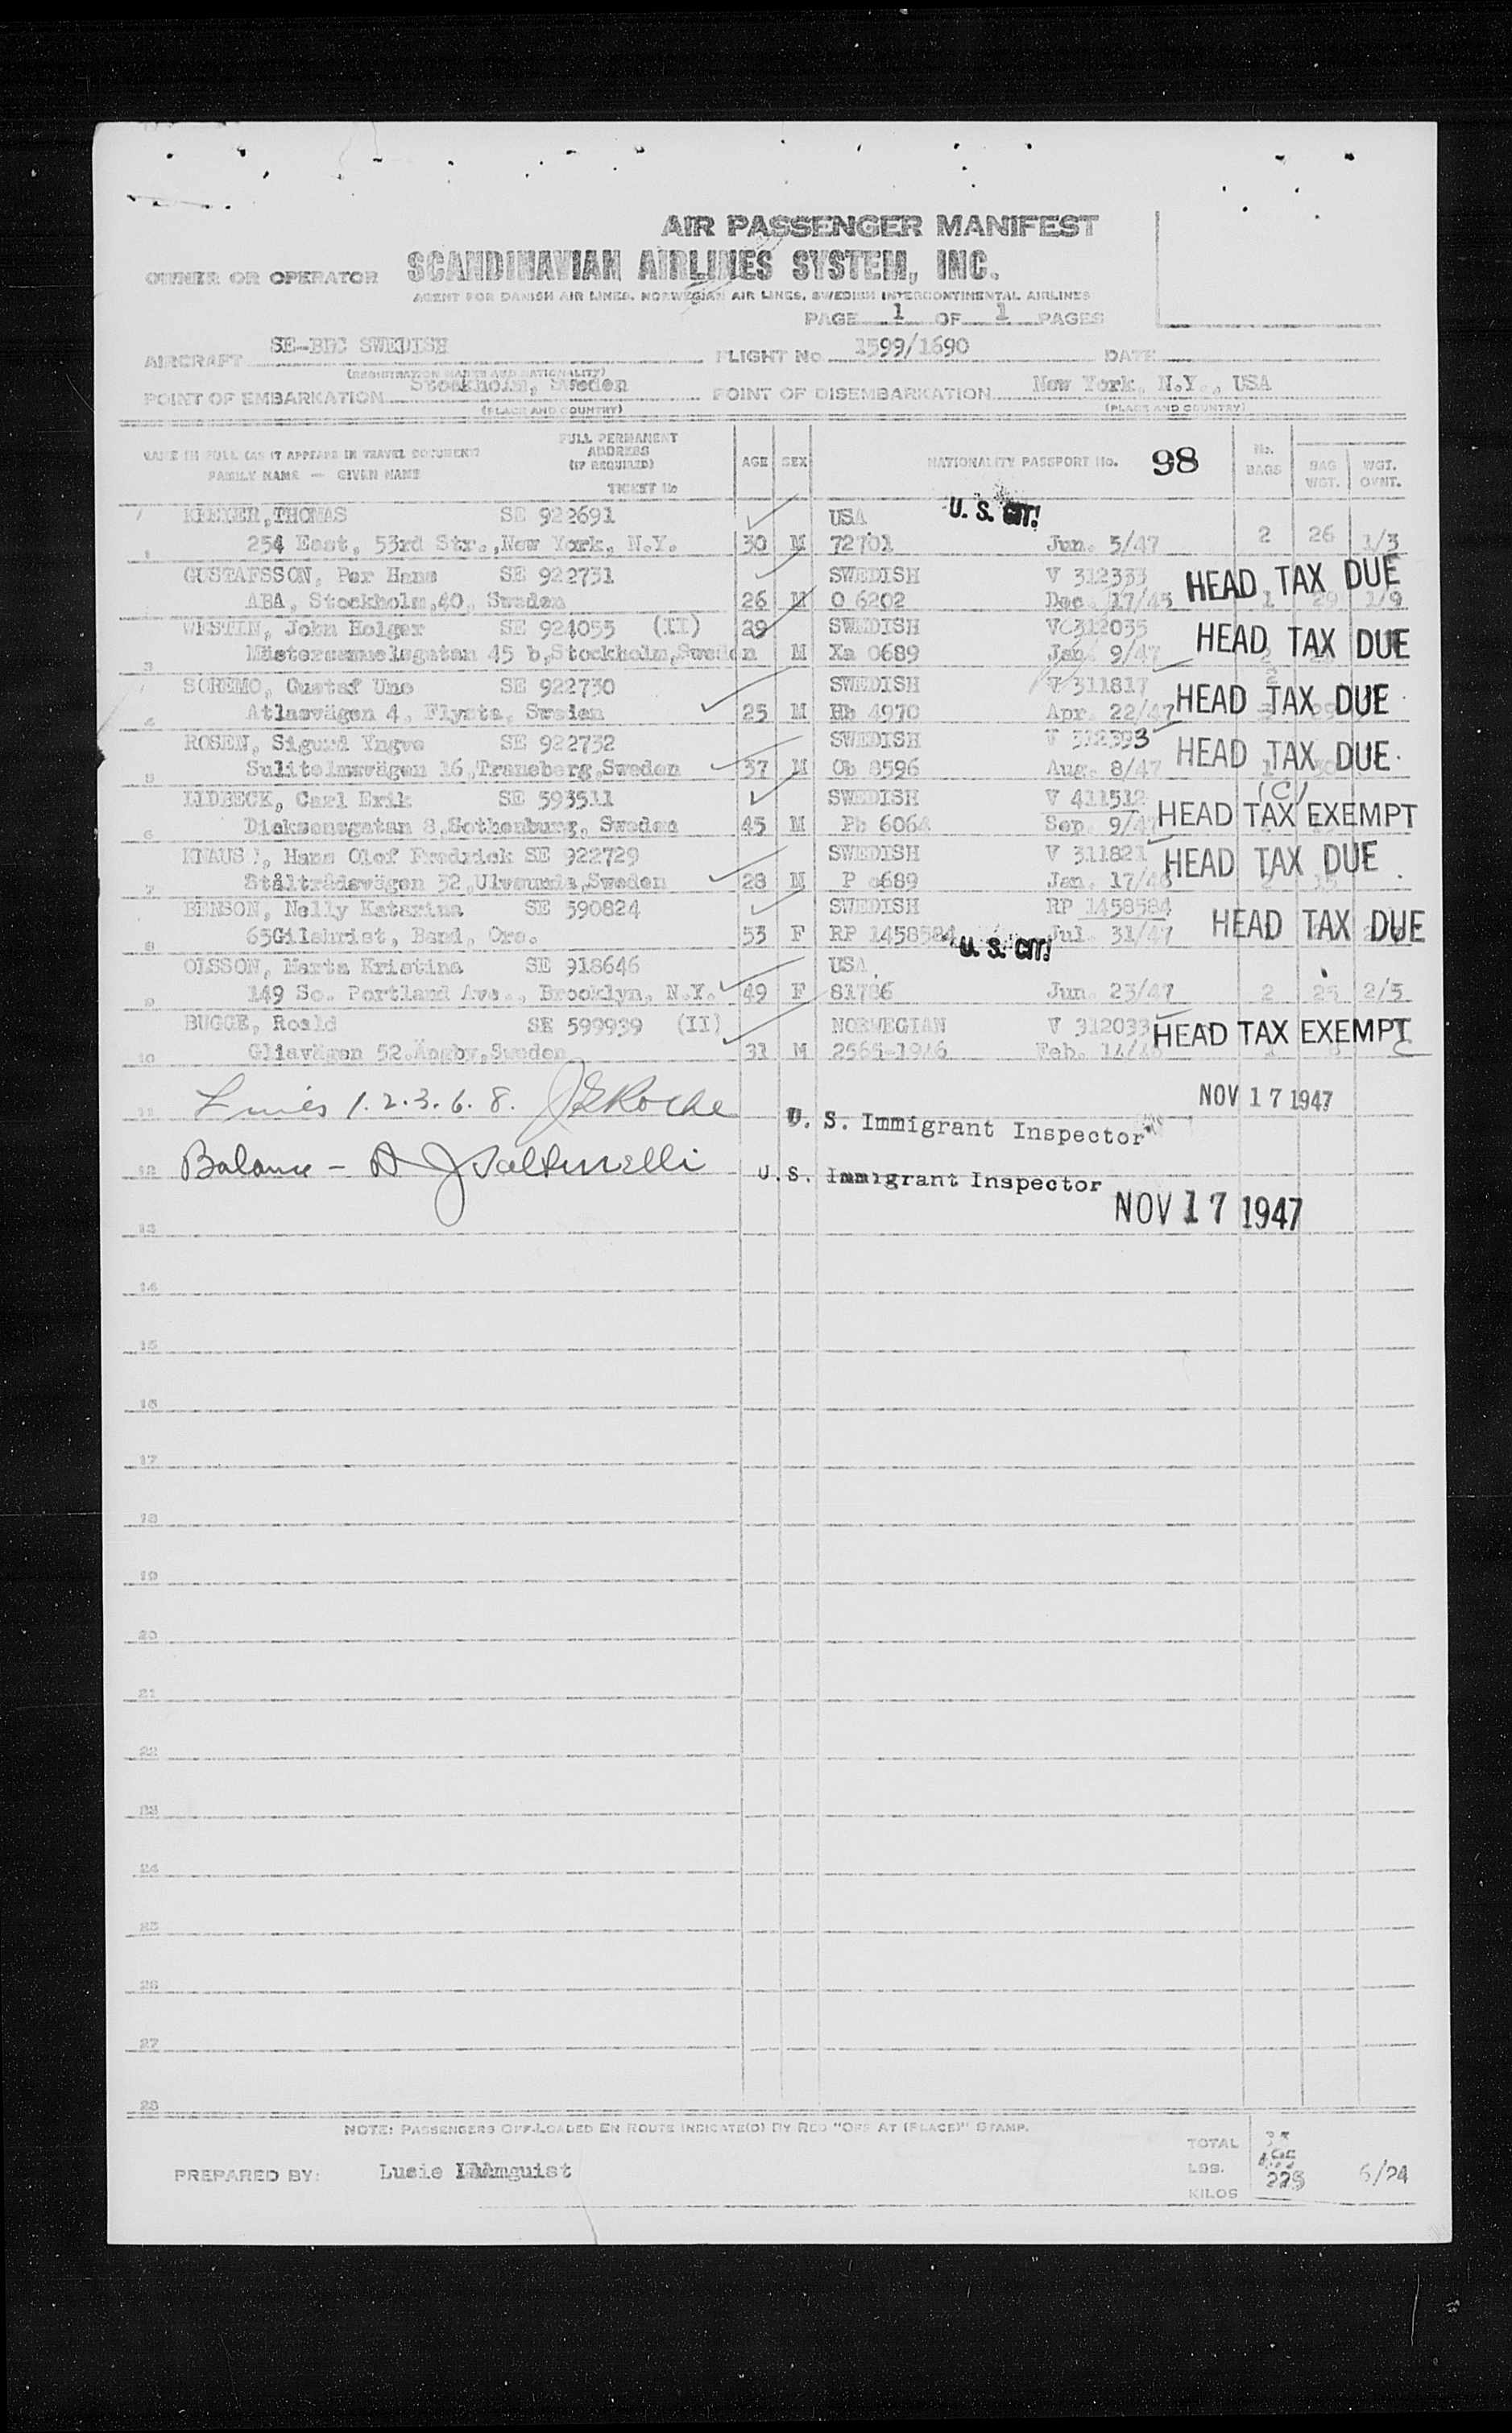 AIR PASSENGER MANIFEST
OWNER OR OPERATOR SCANDINAVIAN AIRLINES SYSTEM, INC.
AGENT FOR DANISH AIR LINES, NORWEGIAN AIR LINES, SWEDISH INTERCONTINENTAL AIRLINES
PAGE 1 OF 1 PAGES
AIRCRAFT SE-BDC SWEDISH FLIGHT No 1599/1690 DATE
(REGISTRATION MARKS AND NATIONALITY)
POINT OF EMBARKATION Stockholm, Sweden POINT OF DISEMBARKATION New York, N.Y., USA
(PLACE AND COUNTRY) (PLACE AND COUNTRY)
NAME IN FULL (AS IT APPEARS IN TRAVEL DOCUMENT) FULL PERMANENT ADDRESS (IF REQUIRED) AGE SEX NATIONALITY PASSPORT No. 98 No. BAGS BAG WGT. WGT. OVNT.
FAMILY NAME — GIVEN NAME TICKET No
THOMAS SE 922691 USA U. S. CIT!
1 254 East, 53rd Str., New York, N.Y. 30 M 72701 Jun. 5/47 2 26 1/3
GUSTAFSSON, Per Hans SE 922731 SWEDISH V 312333 HEAD TAX DUE
ABA, Stockholm,40, Sweden 26 M O 6202 Dec. 17/45 1 29 1/9
WESTIN, John Holger SE 924055 (II) 29 SWEDISH V 312035 HEAD TAX DUE
3 Mästersamuelsgatan 45 b, Stockholm, Sweden M Xa 0689 Jan. 9/47
SOREMO, Gustaf Uno SE 922730 SWEDISH V 311817 HEAD TAX DUE
4 Atlasvägen 4, Flysta, Sweden 25 M Hb 4970 Apr. 22/47
ROSEN, Sigurd Yngve SE 922732 SWEDISH V 312393 HEAD TAX DUE
5 Sulitelmavägen 16, Traneberg, Sweden 37 M Ob 8596 Aug. 8/47
LIDBECK, Carl Erik SE 593511 SWEDISH V 411512 (C)
6 Dicksonsgatan 8, Gothenburg, Sweden 45 M Pb 6064 Sep. 9/47 HEAD TAX EXEMPT
Hans Olof Fredrick SE 922729 SWEDISH V 311821 HEAD TAX DUE
7 Ståltrådsvägen 32, Ulvsunda, Sweden 28 M P 0689 Jan. 17/46
BENSON, Nelly Katarina SE 590824 SWEDISH RP 1458584 HEAD TAX DUE
8 65 Gilchrist, Bend, Ore. 53 F RP 1458584 Jul. 31/47
OLSSON, Marta Kristina SE 918646 USA U. S. CIT!
9 149 So. Portland Ave., Brooklyn, N.Y. 49 F 81786 Jun. 23/47 2 25 2/5
BUGGE, Roald SE 599939 (II) NORWEGIAN V 312033 HEAD TAX EXEMPT
10 Gliavägen 52, Ängby, Sweden 31 M 2565-1946 Feb. 14/46
11 Lines 1.2.3.6.8. J E Roche U. S. Immigrant Inspector NOV 17 1947
12 Balance - A J Saltinelli U.S. Immigrant Inspector
NOV 17 1947
13
14
15
16
17
18
19
20
21
22
23
24
25
26
27
28
NOTE: PASSENGERS OFF-LOADED EN ROUTE INDICATE(D) BY RED "OFF AT (PLACE)" STAMP.
TOTAL
PREPARED BY: Lucie LBS. 225 6/24
KILOS